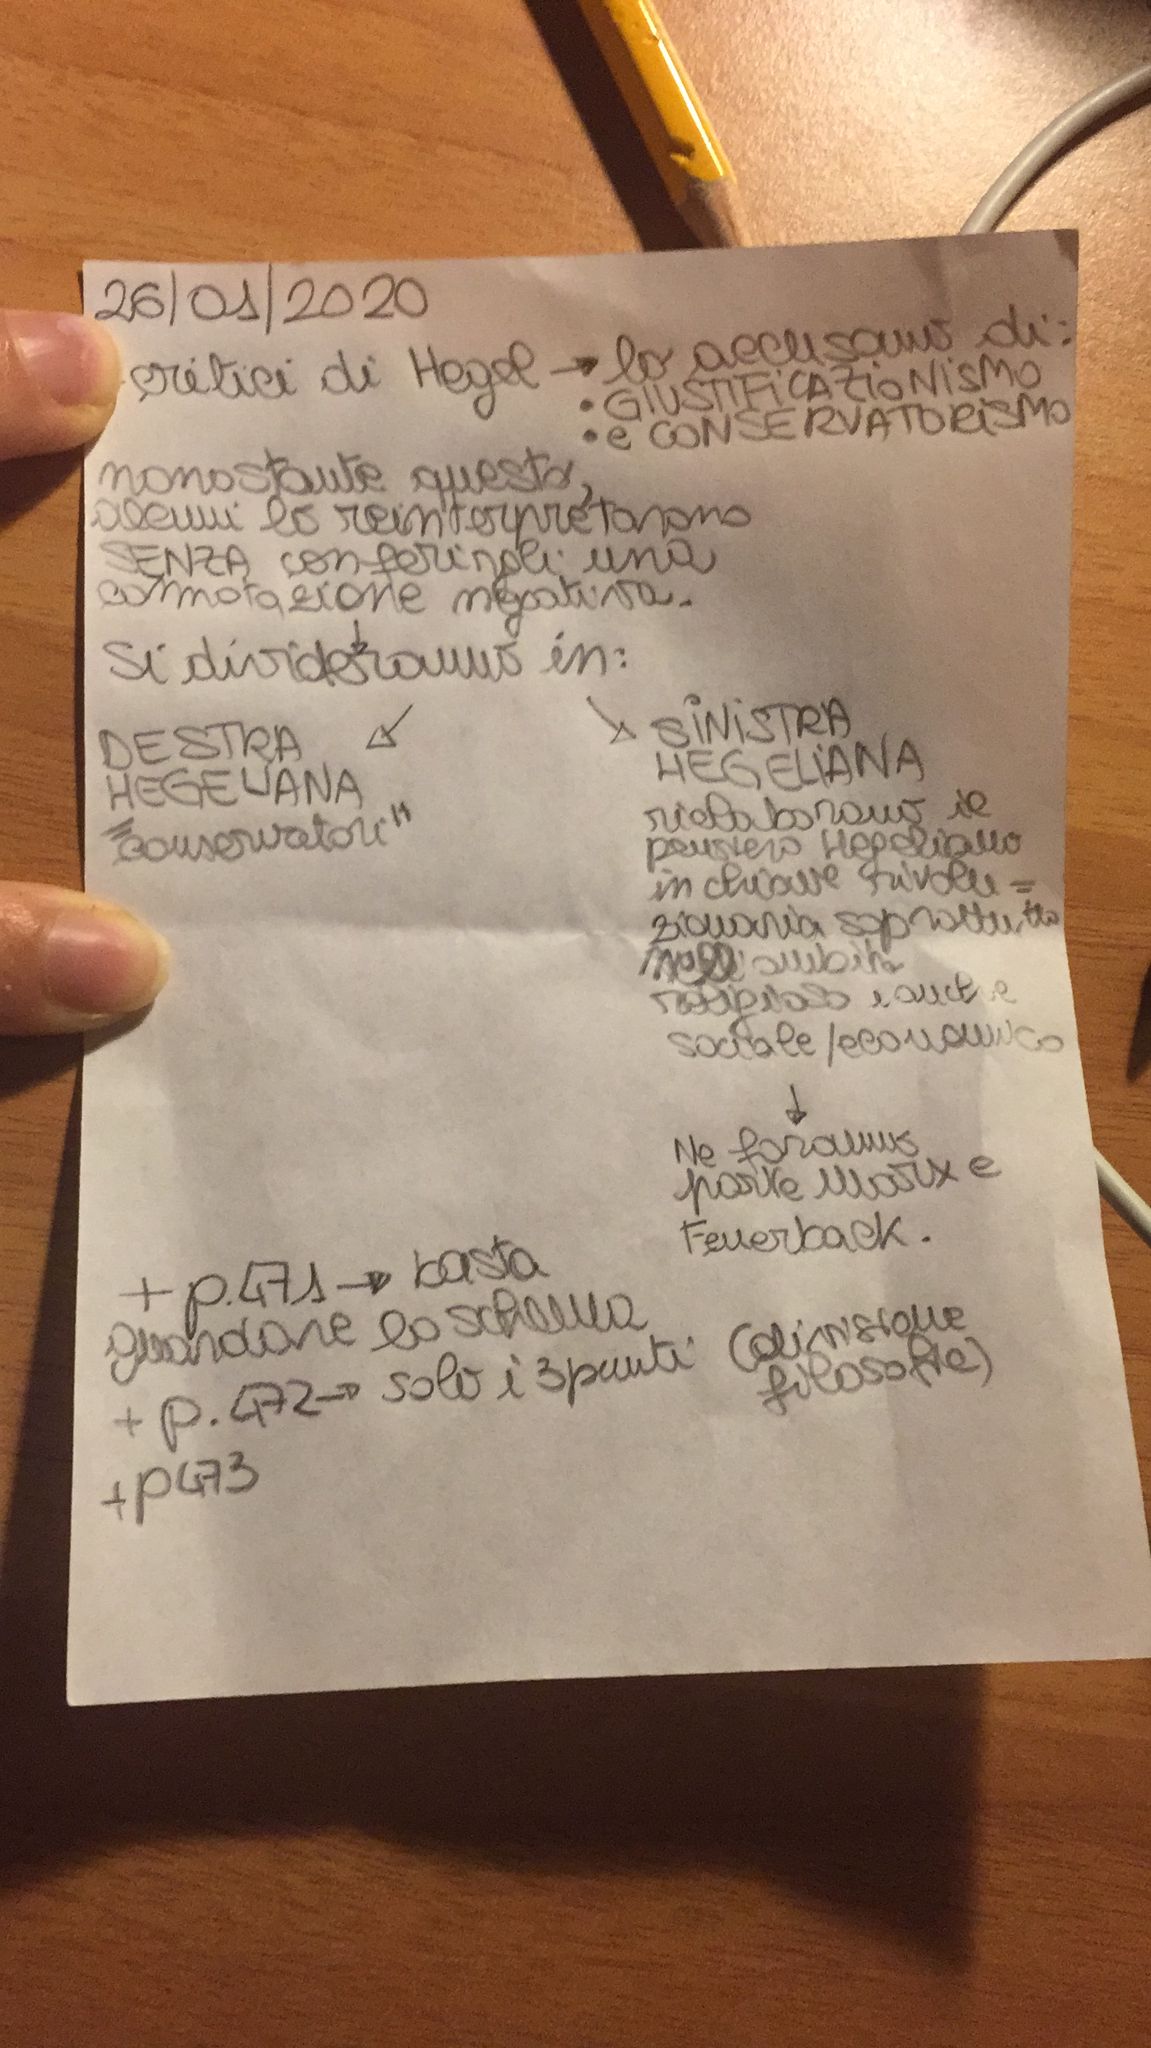 26/01/2020
critici di Hegel → lo accusano di:
• GIUSTIFICAZIONISMO
• e CONSERVATORISMO
nonostante questo,
alcuni lo reinterpretarono
SENZA conferirgli una
connotazione negativa.
↓
Si divideranno in:
↙ ↘
DESTRA
HEGELIANA
"conservatori"
SINISTRA
HEGELIANA
rielaborano il
pensiero Hegeliano
in chiave rivolu=
zionaria soprattutto
nell'ambito
religioso e anche
sociale/economico
↓
Ne faranno
parte Marx e
Feuerback.
+ p.471 → basta
guardare lo schema
+ p.472 → solo i 3 punti (divisione
filosofie)
+p473